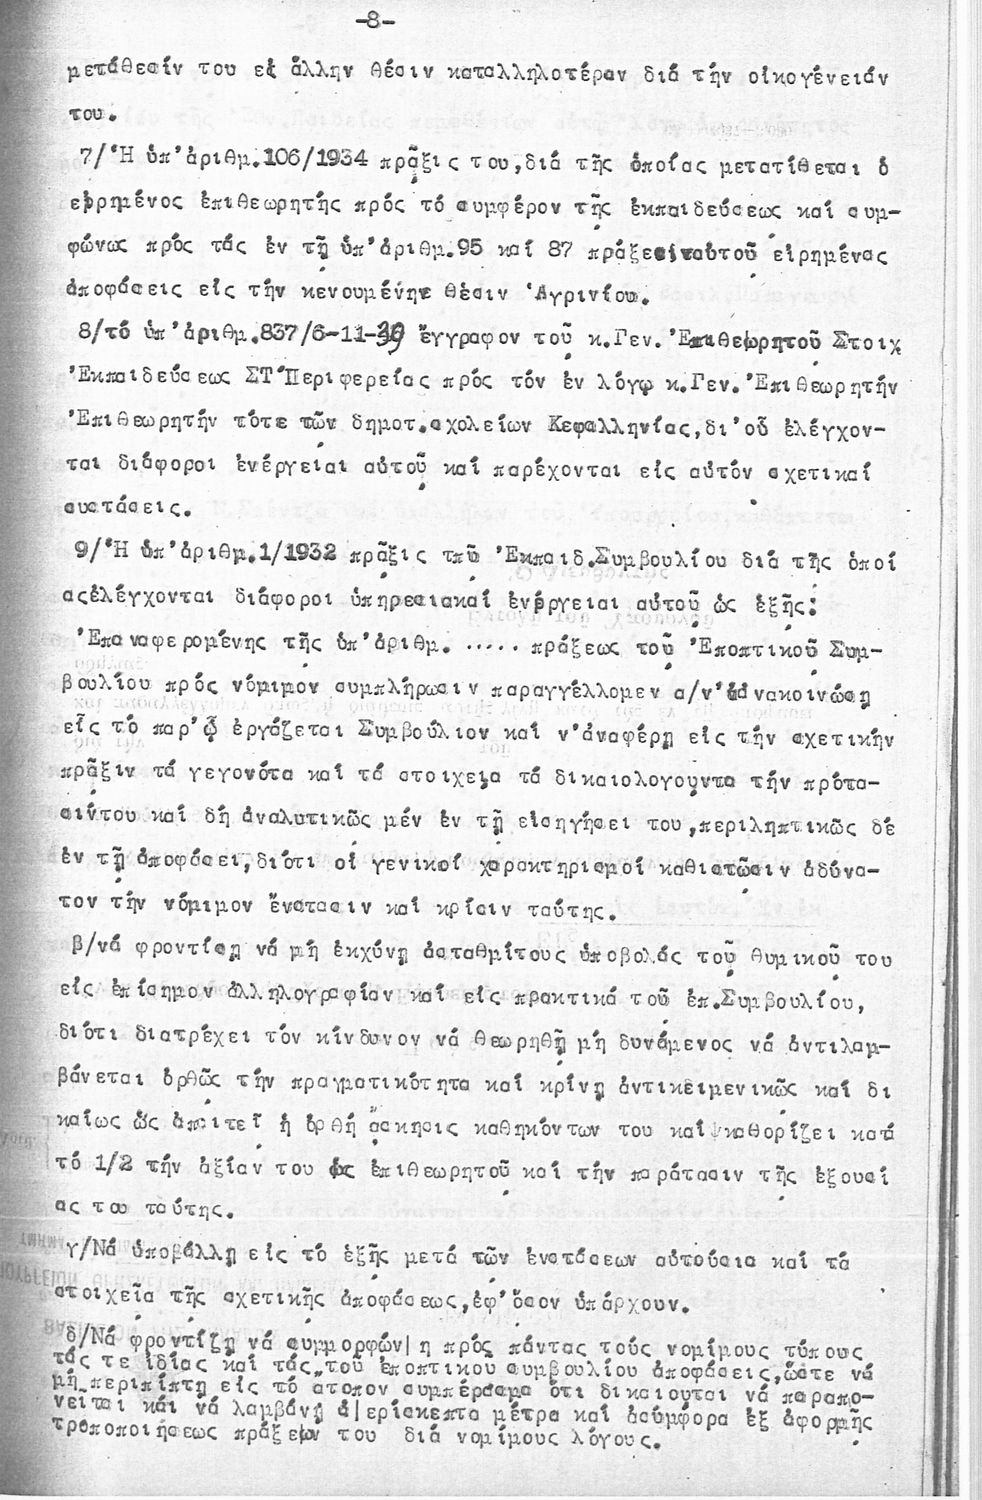 -8-
μετάθεσίν του εἰ ἄλλην θέσιν καταλληλοτέραν διά τήν οἰκογένειάν
του.
7/Ἡ ὑπ'ἀριθμ.106/1934 πρᾶξις του,διά τῆς ὁποίας μετατίθεται ὁ
εἰρημένος ἐπιθεωρητής πρός τό συμφέρον τῆς ἐκπαιδεύσεως καί συμ-
φώνως πρός τάς ἐν τῇ ὑπ'ἀριθμ.95 καί 87 πράξεσιναὐτοῦ εἰρημένας
ἀποφάσεις εἰς τήν κενουμένην θέσιν Ἀγρινίου.
8/τό ὑπ'ἀριθμ.837/6-11-39 ἔγγραφον τοῦ κ.Γεν.Ἐπιθεωρητοῦ Στοιχ
Ἐκπαιδεύσεως ΣΤ΄Περιφερείας πρός τόν ἐν λόγῳ κ.Γεν.Ἐπιθεωρητήν
Ἐπιθεωρητήν τότε τῶν δημοτ.σχολείων Κεφαλληνίας,δι'οὗ ἐλέγχον-
ται διάφοροι ἐνέργειαι αὐτοῦ καί παρέχονται εἰς αὐτόν σχετικαί
συστάσεις.
9/Ἡ ὑπ'ἀριθμ.1/1932 πρᾶξις τπῦ Ἐκπαιδ.Συμβουλίου διά τῆς ὁποί
αςἐλέγχονται διάφοροι ὑπηρεσιακαί ἐνέργειαι αὐτοῦ ὡς ἑξῆς:
Ἐπαναφερομένης τῆς ὑπ'ἀριθμ. ..... πράξεως τοῦ Ἐποπτικοῦ Συμ-
βουλίου πρός νόμιμον συμπλήρωσιν παραγγέλλομεν α/ν'ἀνακοινώσῃ
εἰς τό παρ'ᾧ ἐργάζεται Συμβούλιον καί ν'ἀναφέρῃ εἰς τήν σχετικήν
πρᾶξιν τά γεγονότα καί τά στοιχεῖα τά δικαιολογοῦντα τήν πρότα-
σίντου καί δή ἀναλυτικῶς μέν ἐν τῇ εἰσηγήσει του,περιληπτικῶς δέ
ἐν τῇ ἀποφάσει,διότι οἱ γενικοί χαρακτηρισμοί καθιστῶσιν ἀδύνα-
τον τήν νόμιμον ἔνστασιν καί κρίσιν ταύτης.
β/νά φροντίσῃ νά μή ἐκχύνῃ ἀσταθμίτους ὑποβολάς τοῦ θυμικοῦ του
εἰς ἐπίσημον ἀλληλογραφίαν καί εἰς πρακτικά τοῦ ἐπ.Συμβουλίου,
διότι διατρέχει τόν κίνδυνον νά θεωρηθῇ μή δυνάμενος νά ἀντιλαμ-
βάνεται ὀρθῶς τήν πραγματικότητα καί κρίνῃ ἀντικειμενικῶς καί δι
καίως ὡς ἀπαιτεῖ ἡ ὀρθή ἄσκησις καθηκόντων του καί καθορίζει κατά
τό 1/2 τήν ἀξίαν του ὡς ἐπιθεωρητοῦ καί τήν παράτασιν τῆς ἐξουσί
ας του ταύτης.
γ/Νά ὑποβάλλῃ εἰς τό ἑξῆς μετά τῶν ἐνστάσεων αὐτούσια καί τά
στοιχεῖα τῆς σχετικῆς ἀποφάσεως,ἐφ'ὅσον ὑπάρχουν.
δ/Νά φροντίζῃ νά συμμορφών|η πρός πάντας τούς νομίμους τύπους
τάς τε ἰδίας καί τάς τοῦ ἐποπτικοῦ συμβουλίου ἀποφάσεις,ὥστε νά
μή περιπίπτῃ εἰς τό ἄτοπον συμπέρασμα ὅτι δικαιοῦται νά παραπο-
νεῖται καί νά λαμβάνῃ ἀ|ερίσκεπτα μέτρα καί ἀσύμφορα ἐξ ἀφορμῆς
τροποποιήσεως πράξεών του διά νομίμους λόγους.